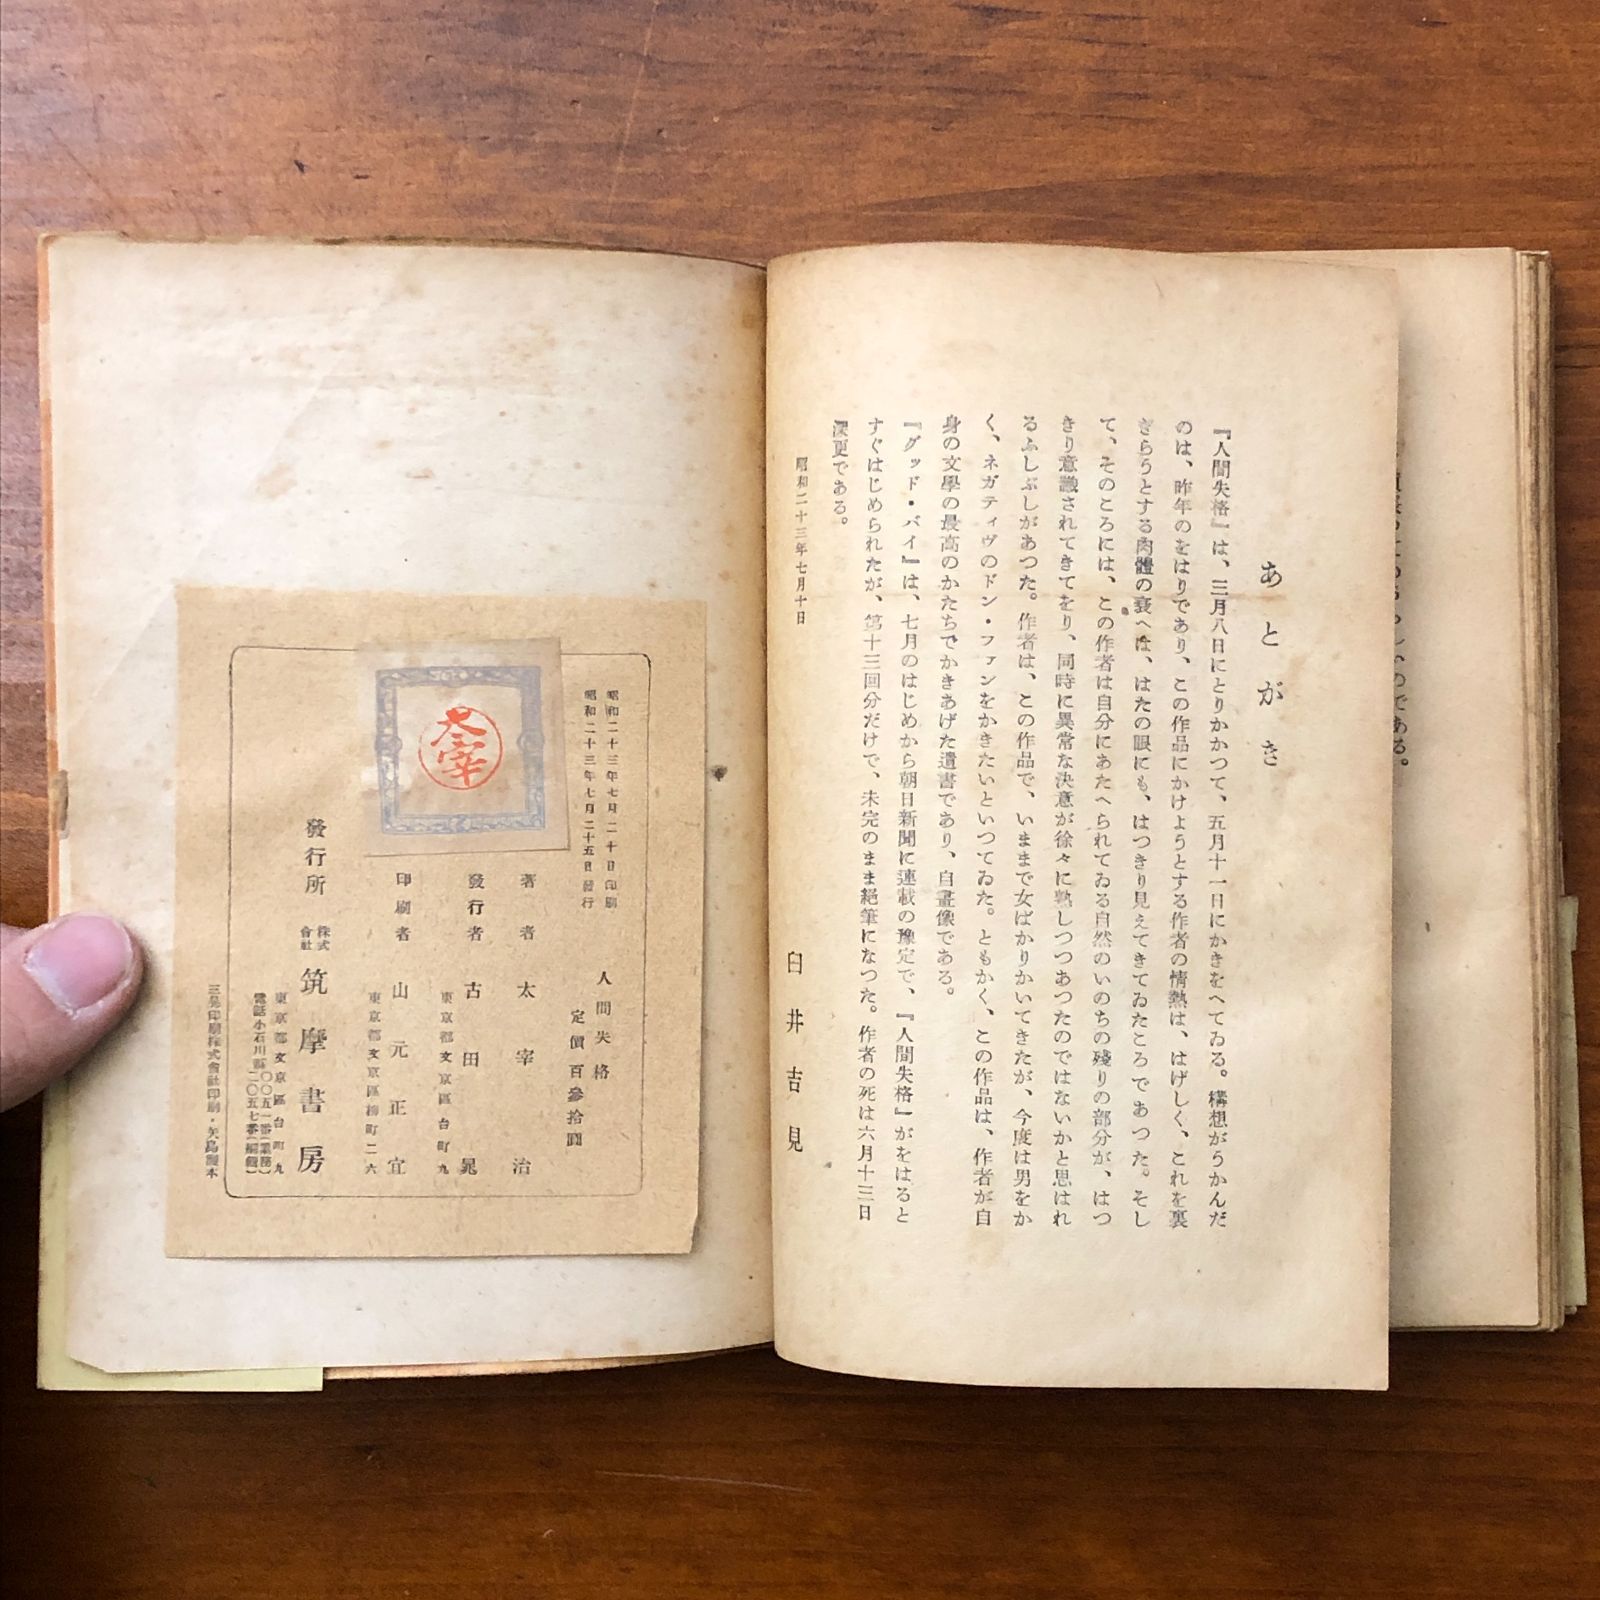 あとがき
『人間失格』は、三月八日にとりかかつて、五月十一日にかきをへてゐる。構想がうかんだ
のは、昨年のをはりであり、この作品にかけようとする作者の情熱は、はげしく、これを裏
ぎらうとする肉體の衰へは、はたの眼にも、はつきり見えてきてゐたころであつた。そし
て、そのころには、この作者は自分にあたへられてゐる自然のいのちの殘りの部分が、はつ
きり意識されてきてをり、同時に異常な決意が徐々に熟しつつあつたのではないかと思はれ
るふしぶしがあつた。作者は、この作品で、いままで女ばかりかいてきたが、今度は男をか
く、ネガティヴのドン・ファンをかきたいといつてゐた。ともかく、この作品は、作者が自
身の文學の最高のかたちでかきあげた遺書であり、自畫像である。
『グッド・バイ』は、七月のはじめから朝日新聞に連載の豫定で、『人間失格』がをはると
すぐはじめられたが、第十三回分だけで、未完のまま絶筆になつた。作者の死は六月十三日
深更である。
昭和二十三年七月十日
臼井吉見
昭和二十三年七月二十日印刷
昭和二十三年七月二十五日發行
人間失格
定價百參拾圓
太宰
著者 太宰治
發行者 古田晁
東京都文京區台町九
印刷者 山元正宜
東京都文京區柳町二六
發行所 株式會社 筑摩書房
東京都文京區台町九
電話小石川
三晃印刷株式會社印刷・矢島製本
のである。